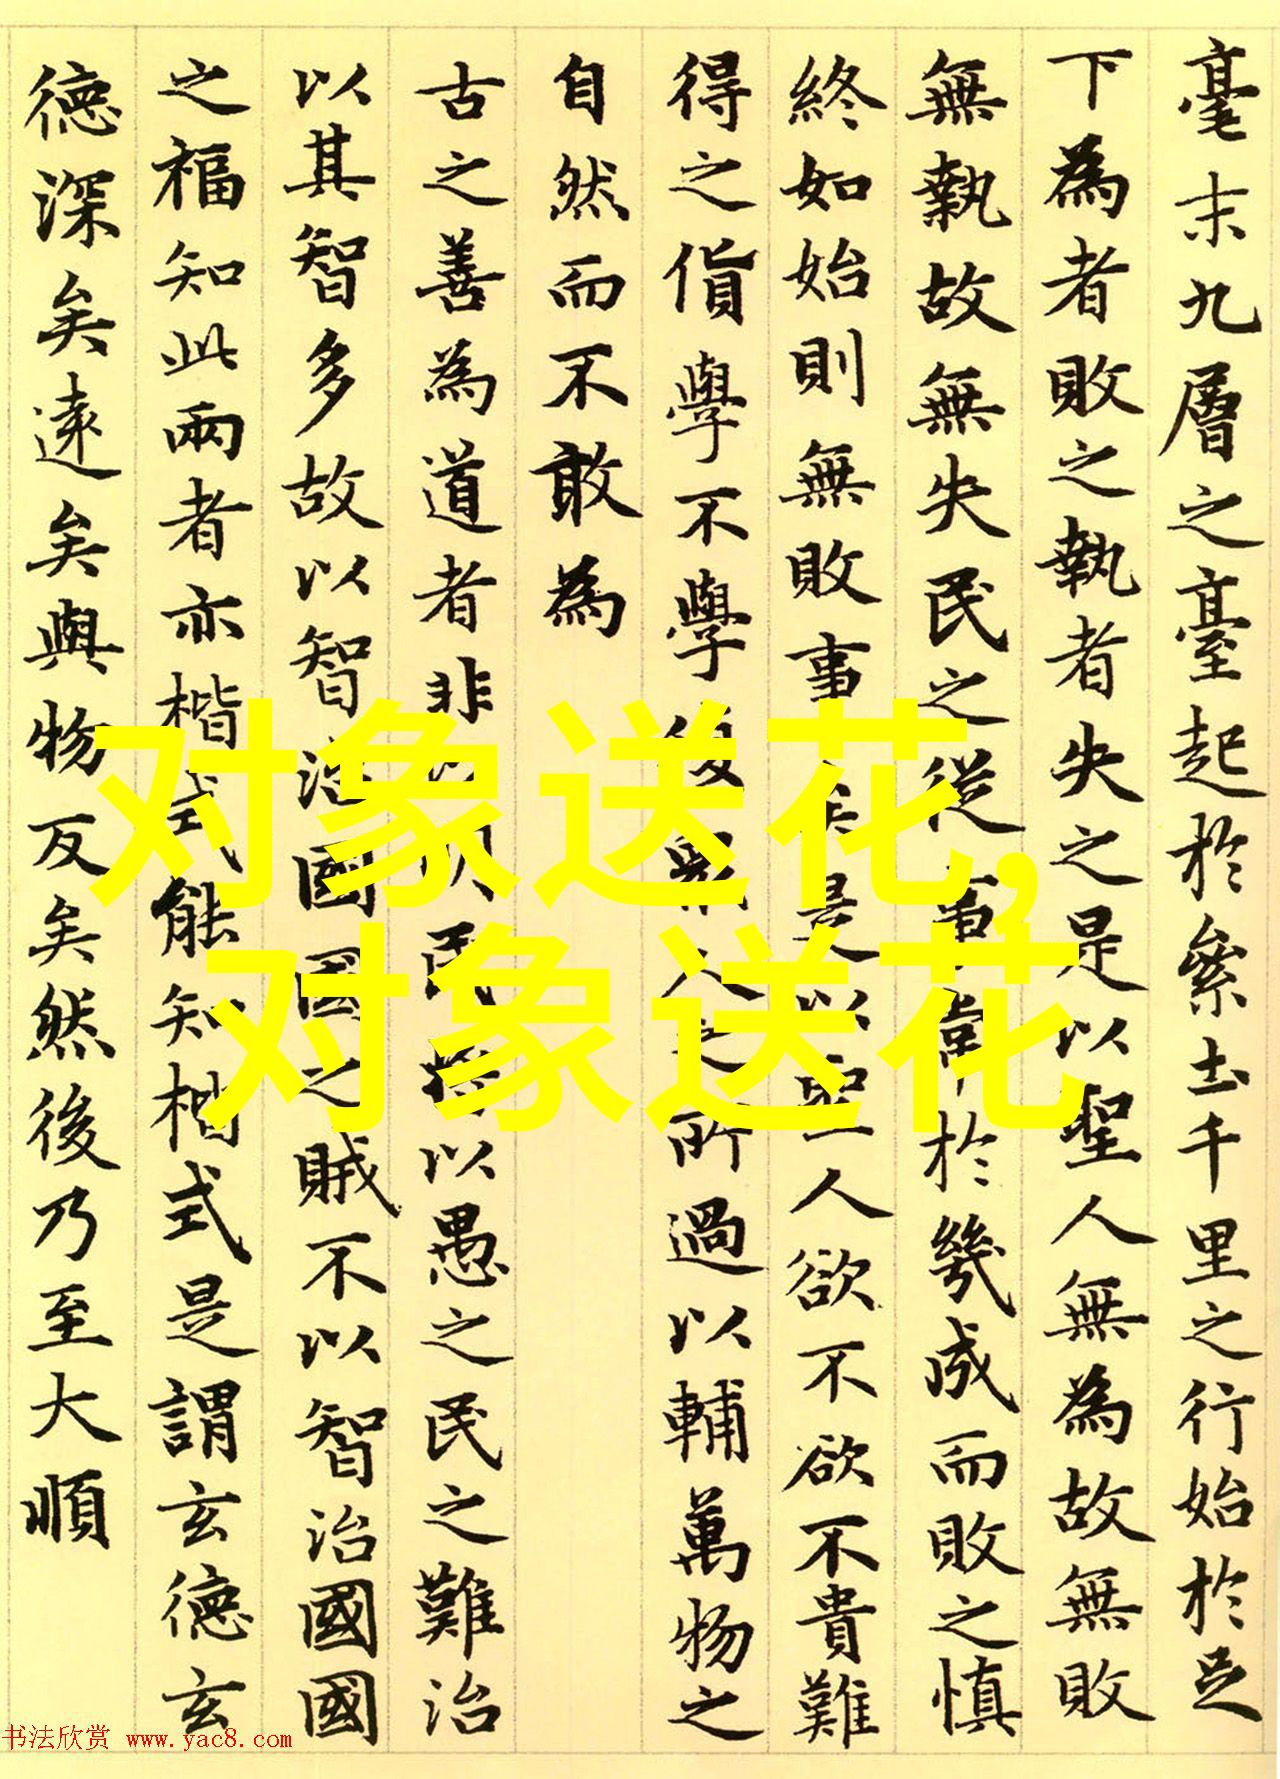 毫末九層之臺起於絫土千里之行始於足
下為者敗之執者失之是以聖人無為故無敗
無執故無失民之從事常於幾成而敗之慎
終如始則無敗事矣是以聖人欲不欲不貴難
得之貨學不學復眾人之所過以輔萬物之
自然而不敢為
古之善為道者非以明民將以愚之民之難治
以其智多故以智治國國之賊不以智治國國
之福知此兩者亦楷式能知楷式是謂玄德玄
德深矣遠矣與物反矣然後乃至大順
对象送花,
对象送花
书法欣赏 www.yac8.com